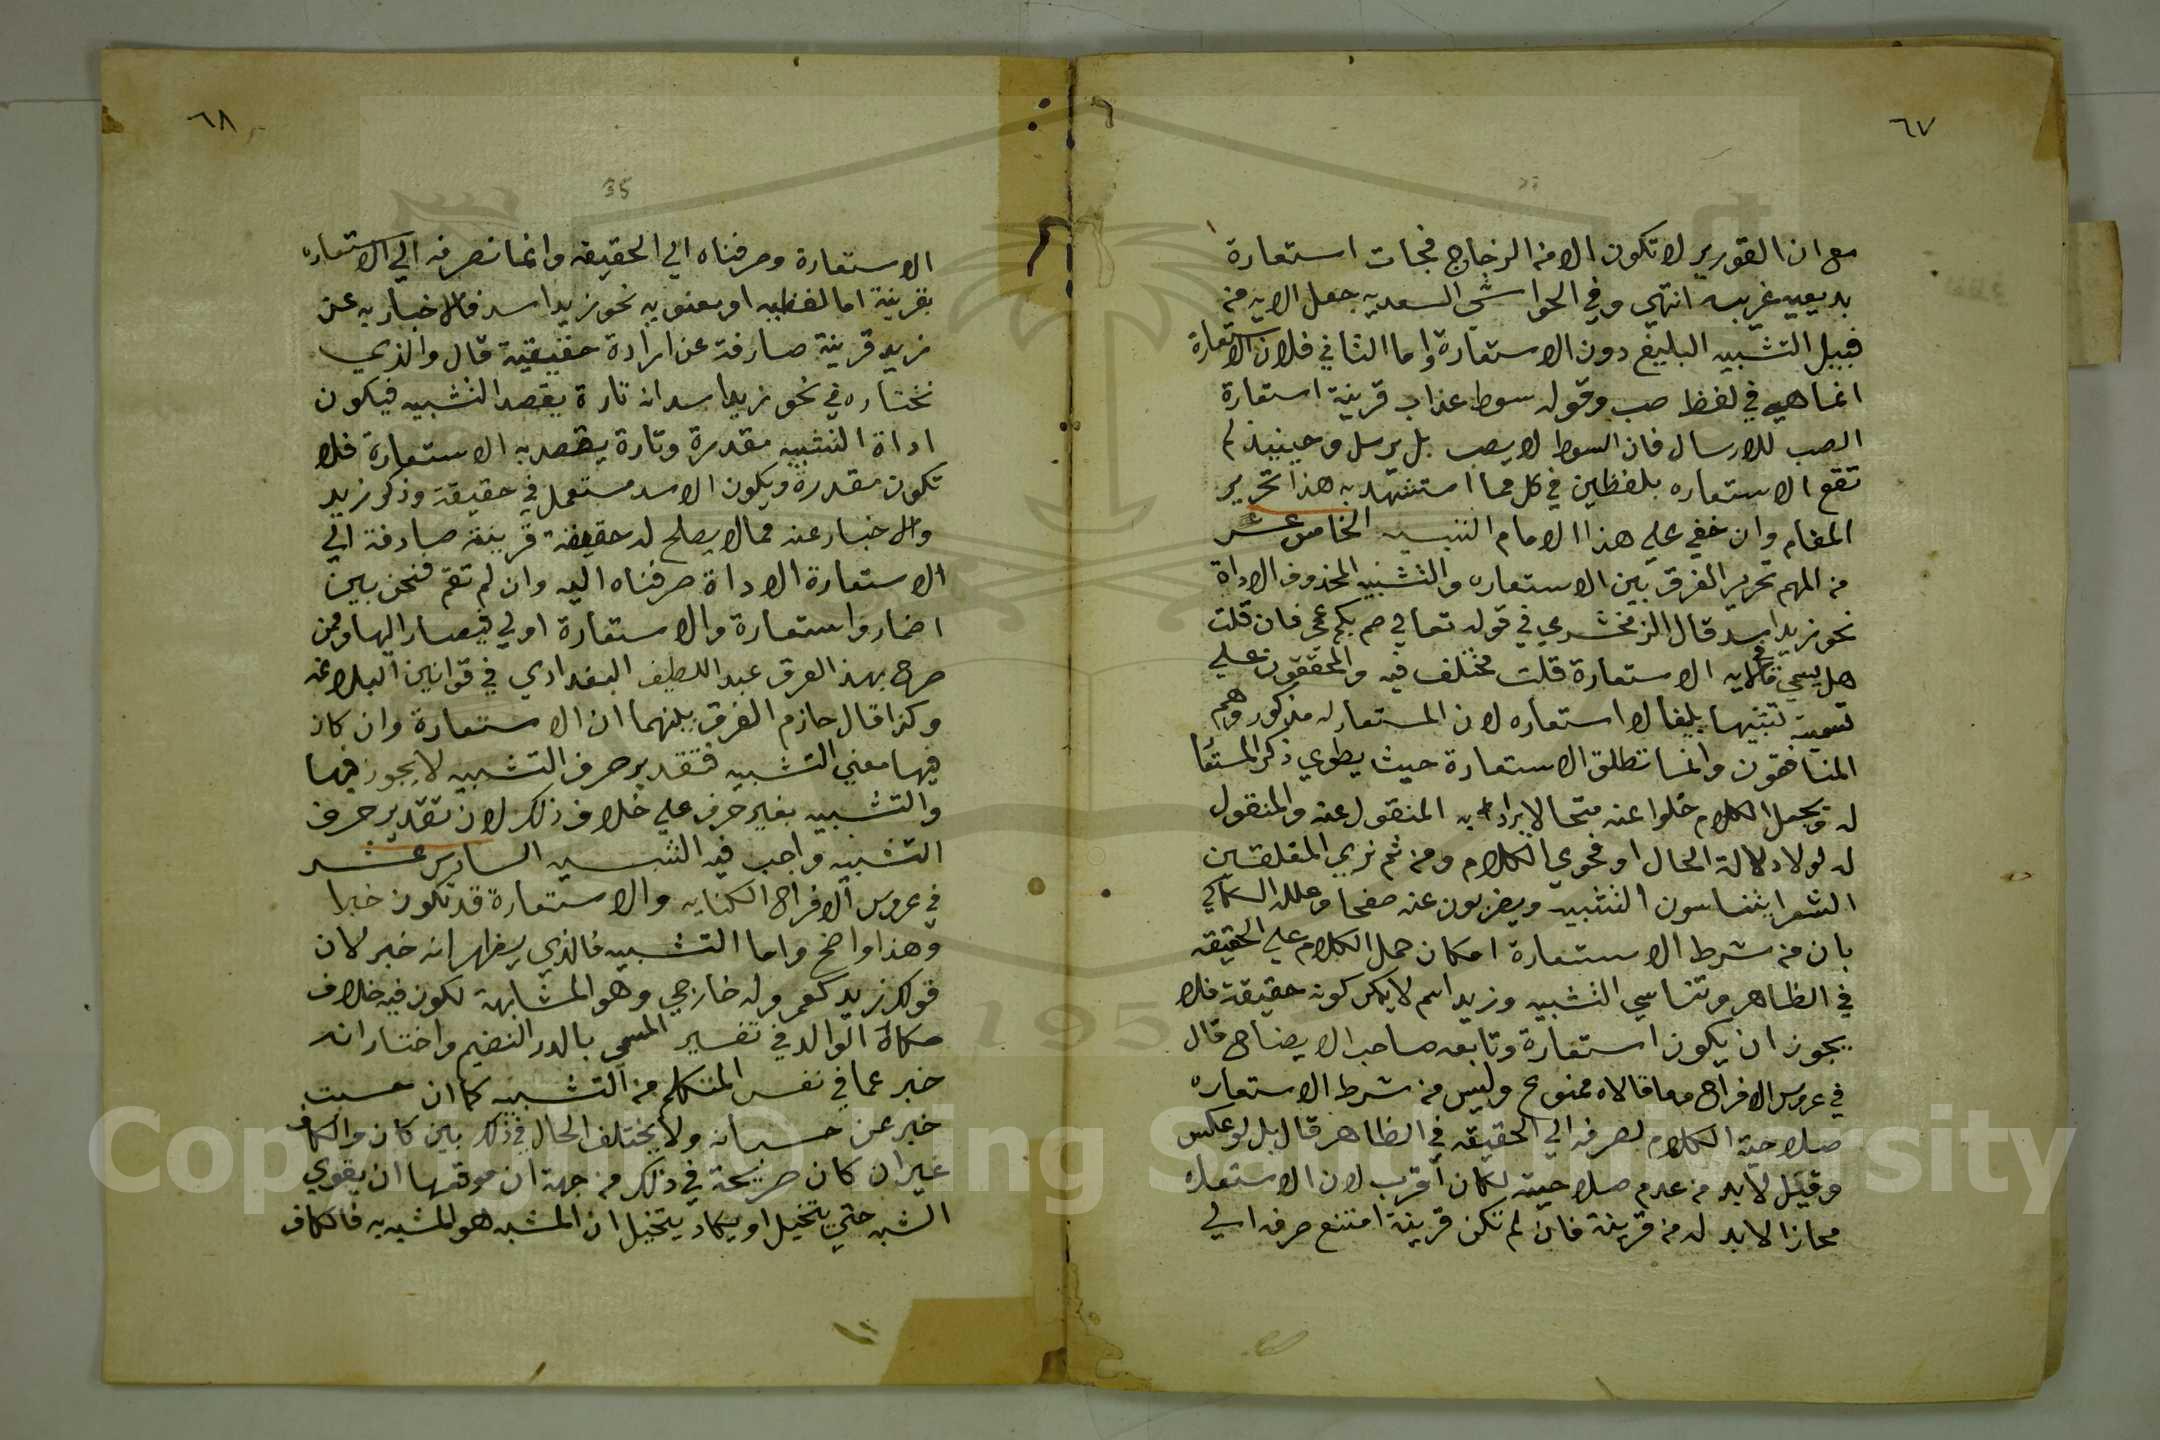 ٦٧
مع ان القورير لا تكون الا من الزجاج فجات استعارة
بديعيه غريبه انتهي وفي الحواشي السعديه جعل الايه من
قبيل التشبيه البليغ دون الاستعارة واما الثاني فلان الاستعارة
انما هي في لفظ صب وقوله سوط عذاب قرينة استعارة
الصب للارسال فان السوط لا يصب بل يرسل وحينيذ لم
تقع الاستعاره بلفظين في كل مما استشهد به هذا تحرير
المقام وان خفي علي هذا الامام التنبيه الخامس عشر
من المهم تحرير الفرق بين الاستعاره والتشبيه المحذوف الاداة
نحو زيد اسد قال الزمخشري في قوله تعالي صم بكم عمي فان قلت
هل يسمي ما في الايه الاستعارة قلت مختلف فيه والمحققون علي
تسميته تشبيها بليغا لا استعاره لان المستعار له مذكور وهم
المنافقون وانما تطلق الاستعارة حيث يطوي ذكر المستعا
له ويجعل الكلام خلوا عنه صالحا لا يراد به المنقول عنه والمنقول
له لولا دلالة الحال او فحوي الكلام ومن ثم نري المفلقين
الشعرا يتناسون التشبيه ويضربون عنه صفحا وعلله السكاكي
بان من شرط الاستعارة امكان حمل الكلام علي الحقيقه
في الظاهر وتناسي التشبيه وزيد اسم لا يمكن كونه حقيقة فلا
يجوز ان يكون استعارة وتابعه صاحب الايضاح قال
في عروس الافراح وما قالاه ممنوع وليس من شرط الاستعاره
صلاحية الكلام لصرفه الي الحقيقه في الظاهر قال بل لو عكس
وقيل لابد من عدم صلاحيته لكان اقرب لان الاستعاره
مجاز الابد له من قرينة فان لم تكن قرينة امتنع صرفه الي
٦٨
35
الاستعارة وصرفناه الي الحقيقه وانما نصرفه الي الاستعاره
بقرينة اما لفظيه او معنويه نحو زيد اسد فالاخبار به عن
زيد قرينة صارفة عن ارادة حقيقية قال والذي
نختاره في نحو زيد اسد انه تارة يقصد التشبيه فيكون
اداة التشبيه مقدرة وتارة يقصد به الاستعارة فلا
تكون مقدرة ويكون الاسد مستعمل في حقيقة وذكر زيد
والاخبار عنه مما لا يصلح له حقيقة قرينة صارفة الي
الاستعارة الاداة صرفناه اليه وان لم تقم فنحن بين
اضمار واستعارة والاستعارة اولي فيصار اليها وممن
صرح بهذ الفرق عبد اللطيف البغدادي في قوانين البلاغه
وكذا قال حازم الفرق بينهما ان الاستعارة وان كان
فيها معني التشبيه فتقدير حرف التشبيه لا يجوز فيها
والتشبيه بغير حرف علي خلاف ذلك لان تقدير حرف
التشبيه واجب فيه التنبيه السادس عشر
في عروس الافراح الكنايه والاستعارة قد تكون خبرا
وهذا واضح واما التشبيه فالذي يظهر انه خبر لان
قولك زيد كعمرو له خارجي وهو المشابهة لكون فيه خلاف
حكاه الوالد في تفسير المسمي بالدر النضيم واختار انه
خبر عما في نفس المتكلم من التشبيه كما ان حسبت
خبر عن حسبانه ولا يختلف الحال في ذلك بين كان والكاف
غير ان كان صريحة في ذلك من جهة ان موقعها ان يقوي
الشبه حتي يتخيل او يكاد يتخيل ان المشبه هو المشبه به فالكاف
Copyright © King Saud University
1957